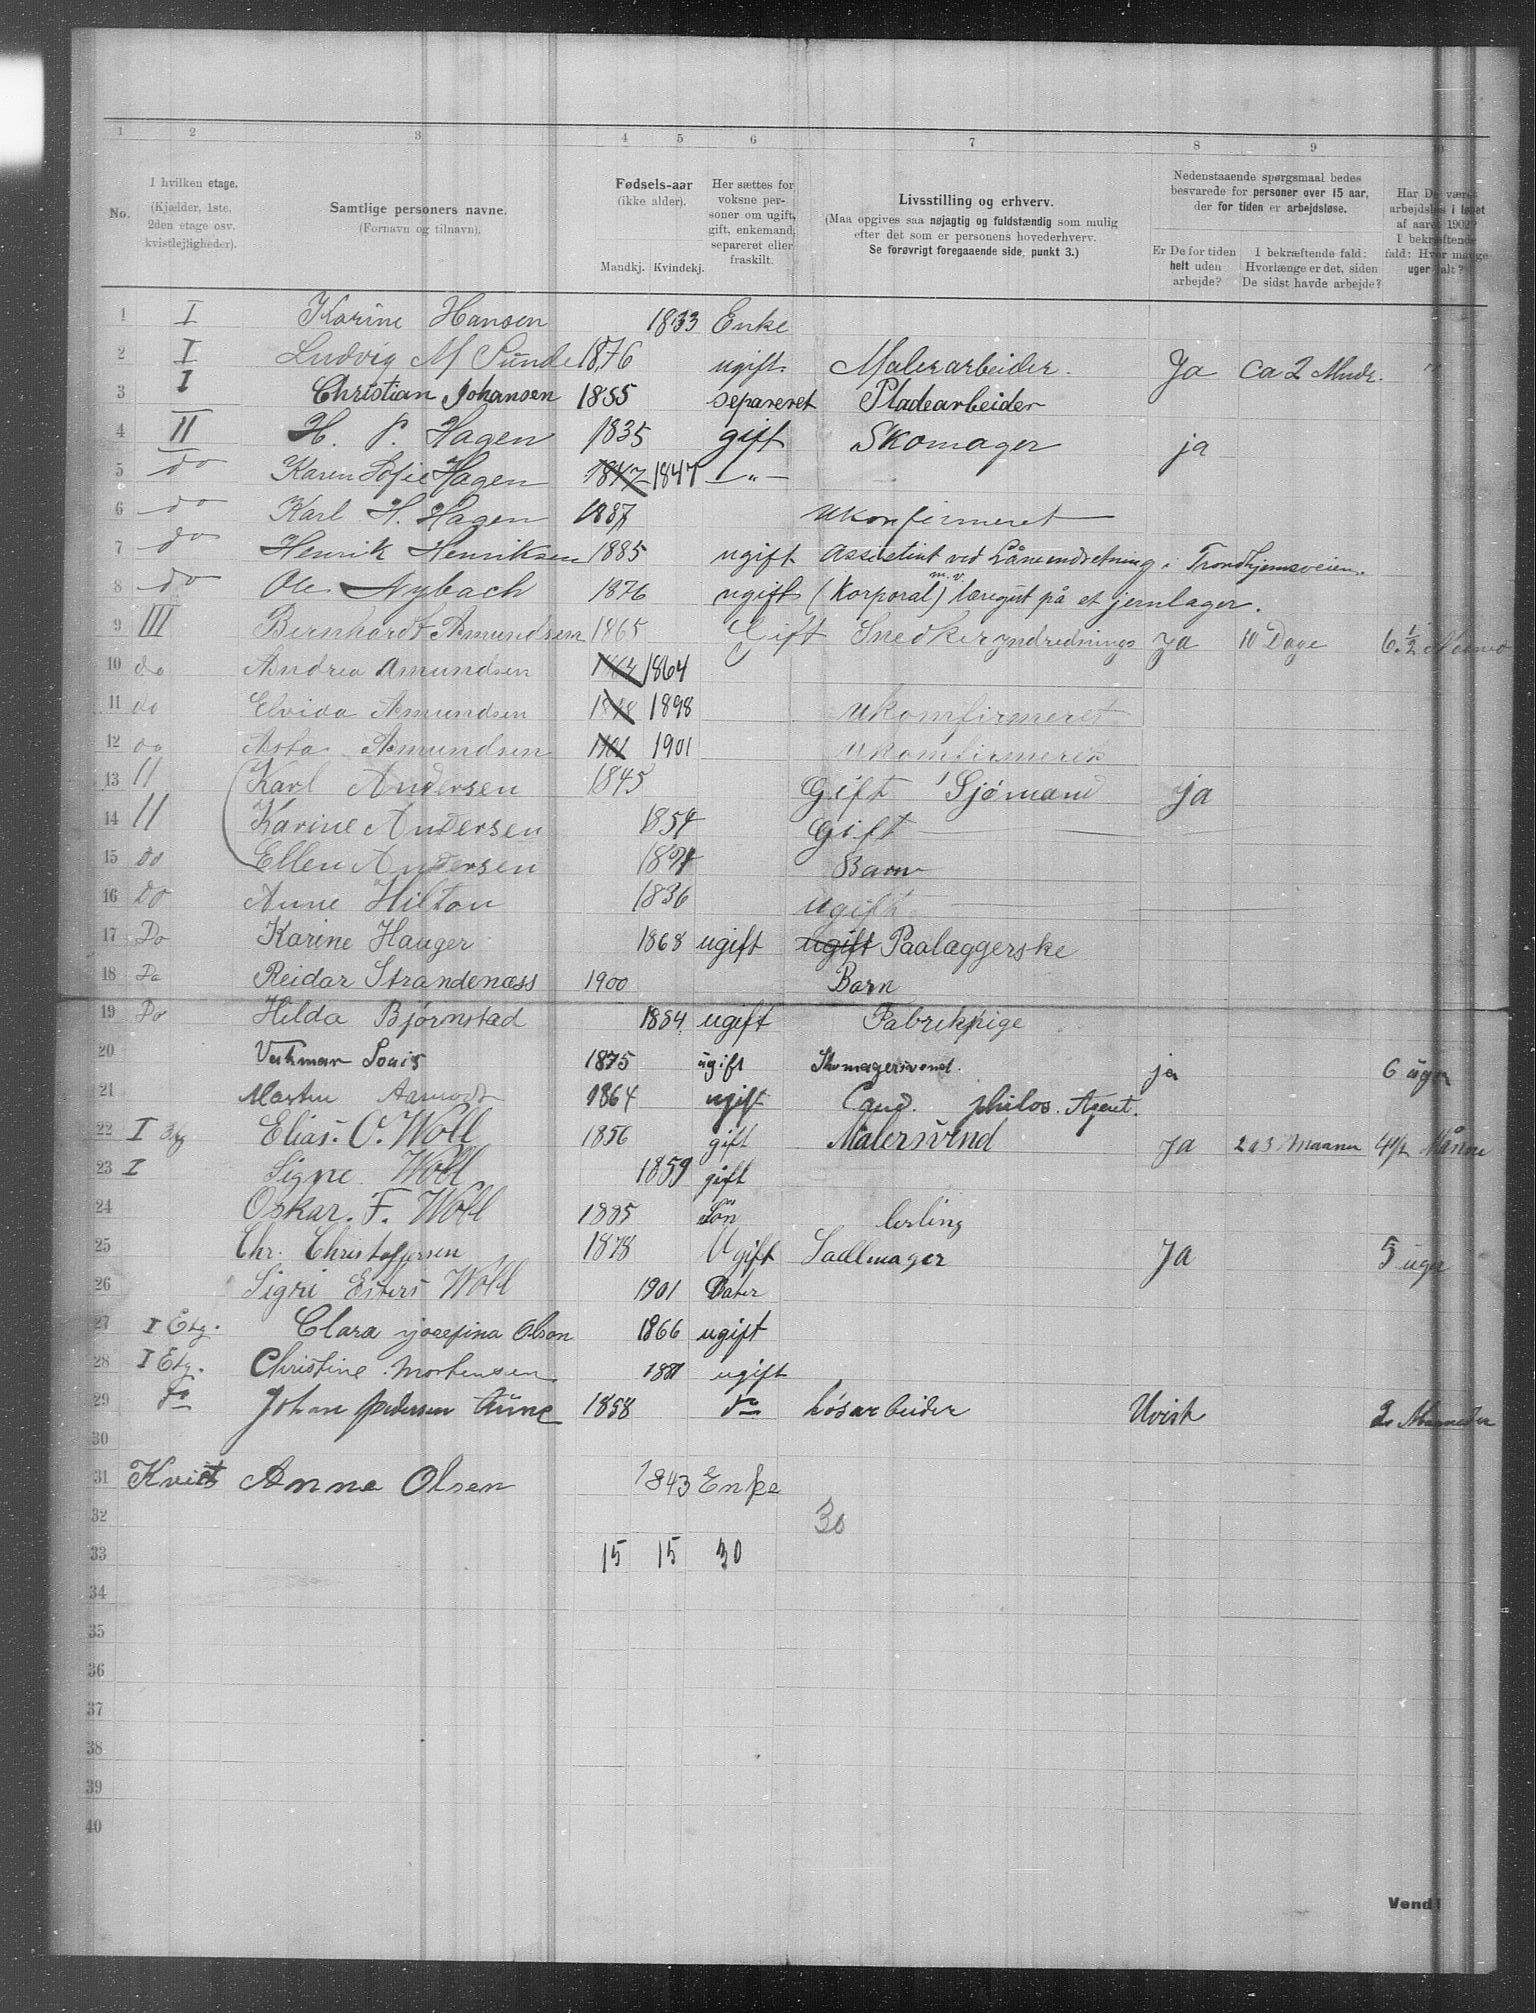 1 2 3 4 5 6 7 8 9 10
No.
I hvilken etage. (Kjælder, 1ste, 2den etage osv. kvistlejligheder).
Samtlige personers navne. (Fornavn og tilnavn).
Fødsels-aar (ikke alder). Mandkj. Kvindekj.
Her sættes for voksne personer om ugift, gift, enkemand, separeret eller fraskilt.
Livsstilling og erhverv. (Maa opgives saa nøjagtig og fuldstændig som mulig efter det som er personens hovederhverv. Se forøvrigt foregaaende side, punkt 3.)
Nedenstaaende spørgsmaal bedes besvarede for personer over 15 aar, der for tiden er arbejdsløse.
Er De for tiden helt uden arbejde?
I bekræftende fald: Hvorlænge er det, siden De sidst havde arbejde?
Har De været arbejdsløs i løbet af aaret 1902? I bekræftende fald: Hvor mange uger ialt?
1 I Karine Hansen 1833 Enke
2 I Ludvig M Sunde 1876 ugift Malerarbeider. Ja ca 2 Mndr. "
3 I Christian Johansen 1855 separeret Pladearbeider
4 II H. P. Hagen 1835 gift Skomager ja
5 do Karen Sofie Hagen 1847 1847 — " —
6 do Karl H. Hagen 1887 ukonfirmeret
7 do Henrik Henriksen 1885 ugift Assistent ved Låneindretning i Trondhjemsveien.
8 do Ole Nybach 1876 ugift (Korporal) m.v. læregut på et jernlager.
9 III Bernhardt Amundsen 1865 Gift Snedker yndrednings Ja 10 Dage 6. 1/2
10 do Andrea Amundsen 1864 1864
11 do Elvida Amundsen 1898 1898 ukomfirmeret
12 do Asta Amundsen 1901 1901 ukomfirmeret
13 II Karl Andersen 1845 Gift Sjømand ja
14 II Karine Andersen 1854 Gift
15 do Ellen Andersen 1894 Barn
16 Do Anne Hilton 1836 ugift
17 Do Karine Hauger 1868 ugift ugift Paalæggerske
18 Do Reidar Strandenæss 1900 Barn
19 Do Hilda Bjørnstad 1884 ugift Fabrikpige
20 Louis 1875 ugift Skomagersvend. ja 6 uger
21 Martin Aamodt 1864 ugift Cand. philos. Agent.
22 I Elias. O. Woll 1856 gift Malersvend Ja 2 a 3 Maaner 4 1/2 Måner
23 I Signe Woll 1859 gift
24 Oskar. F. Woll 1885 Søn lerling
25 Chr. Christoffersen 1878 Ugift Sadlmager Ja 5 uger
26 Sigri Esters Woll 1901 Dater
27 I Etg. Clara Josefina Olson 1866 ugift
28 I Etg. Christine Mortensen 1881 ugift
29 do Johan Pedersen Aune 1858 do Løsarbeider Uvist 2 Maaneder
30
31 Kvist Anna Olsen 1843 Enke
32 30
33 15 15 30
34
35
36
37
38
39
40
Vend!